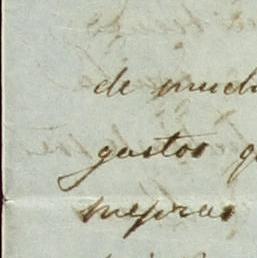 de much
gastos q
mejoras